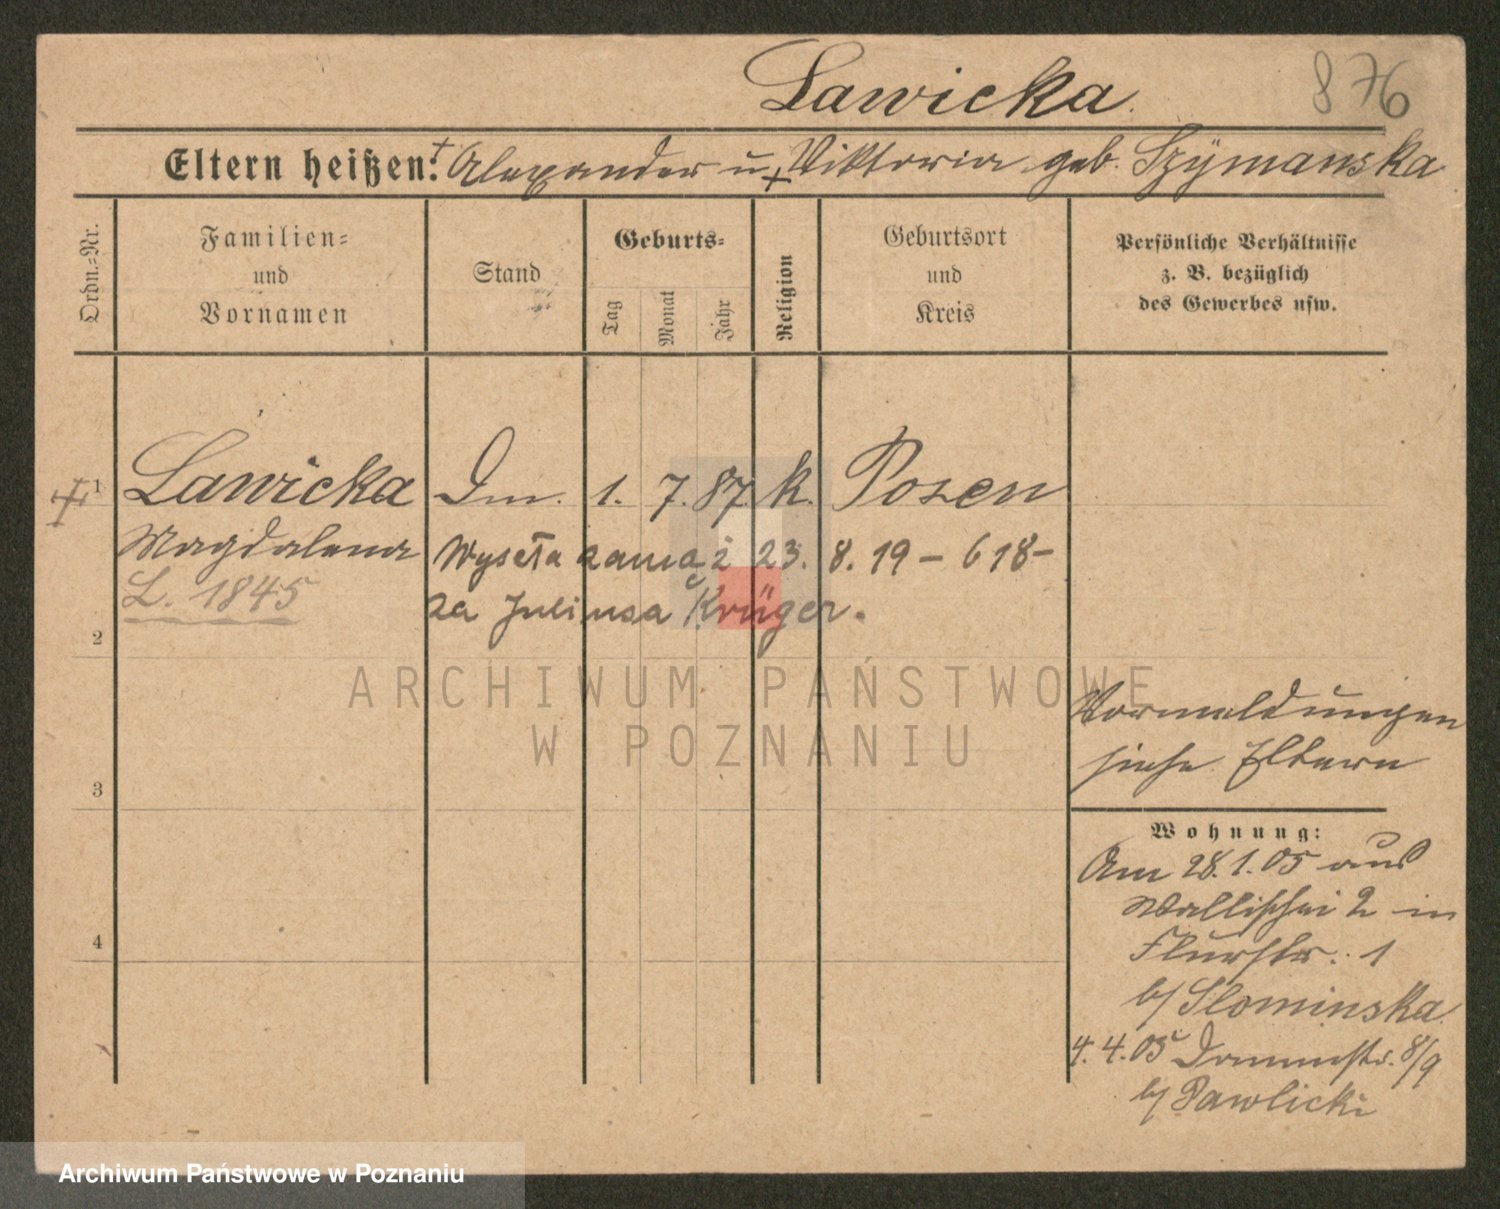 Lawicka. 876
Eltern heißen: + Alexander u. + Viktoria geb. Szymanska
Ordn.=Nr.
Familien=
und
Vornamen
Stand
Geburts=
Tag
Monat
Jahr
Religion
Geburtsort
und
Kreis
Persönliche Verhältnisse
z. B. bezüglich
des Gewerbes usw.
1 Lawicka Dm. 1. 7. 87. k. Posen
Magdalena Wyszła zamąż 23. 8. 19 – 618 –
L. 1845 za Juliusa Krüger.
2
ARCHIWUM PAŃSTWOWE
W POZNANIU
Vormeldungen
siehe Eltern
3
Wohnung:
Am 28.1.05 aus
Wallischei 2 in
Flurstr. 1
b/ Slominska.
4
4.4.05 Dommstr. 8/9
b/ Pawlicki
Archiwum Państwowe w Poznaniu